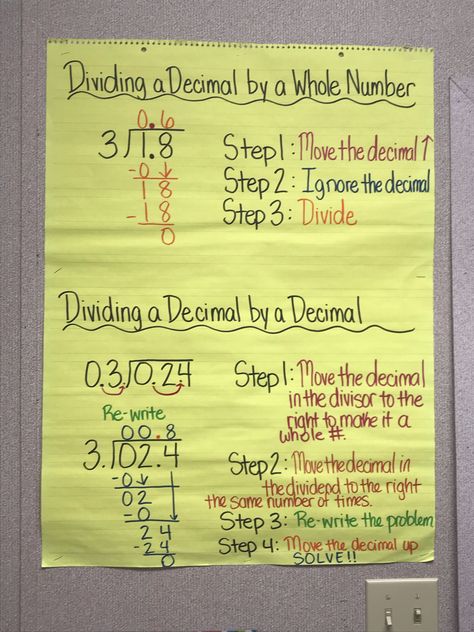 Dividing a Decimal by a Whole Number
0.6
3 1.8
-0↓
18
-18
0
Step 1: Move the decimal ↑
Step 2: Ignore the decimal
Step 3: Divide
Dividing a Decimal by a Decimal
0.3. 0.24
Re-write
00.8
3. 02.4
-0↓
02
-0↓
24
-24
0
Step 1: Move the decimal
in the divisor to the
right to make it a
whole #.
Step 2: Move the decimal in
the dividend to the right
the same number of times.
Step 3: Re-write the problem
Step 4: Move the decimal up
SOLVE!!